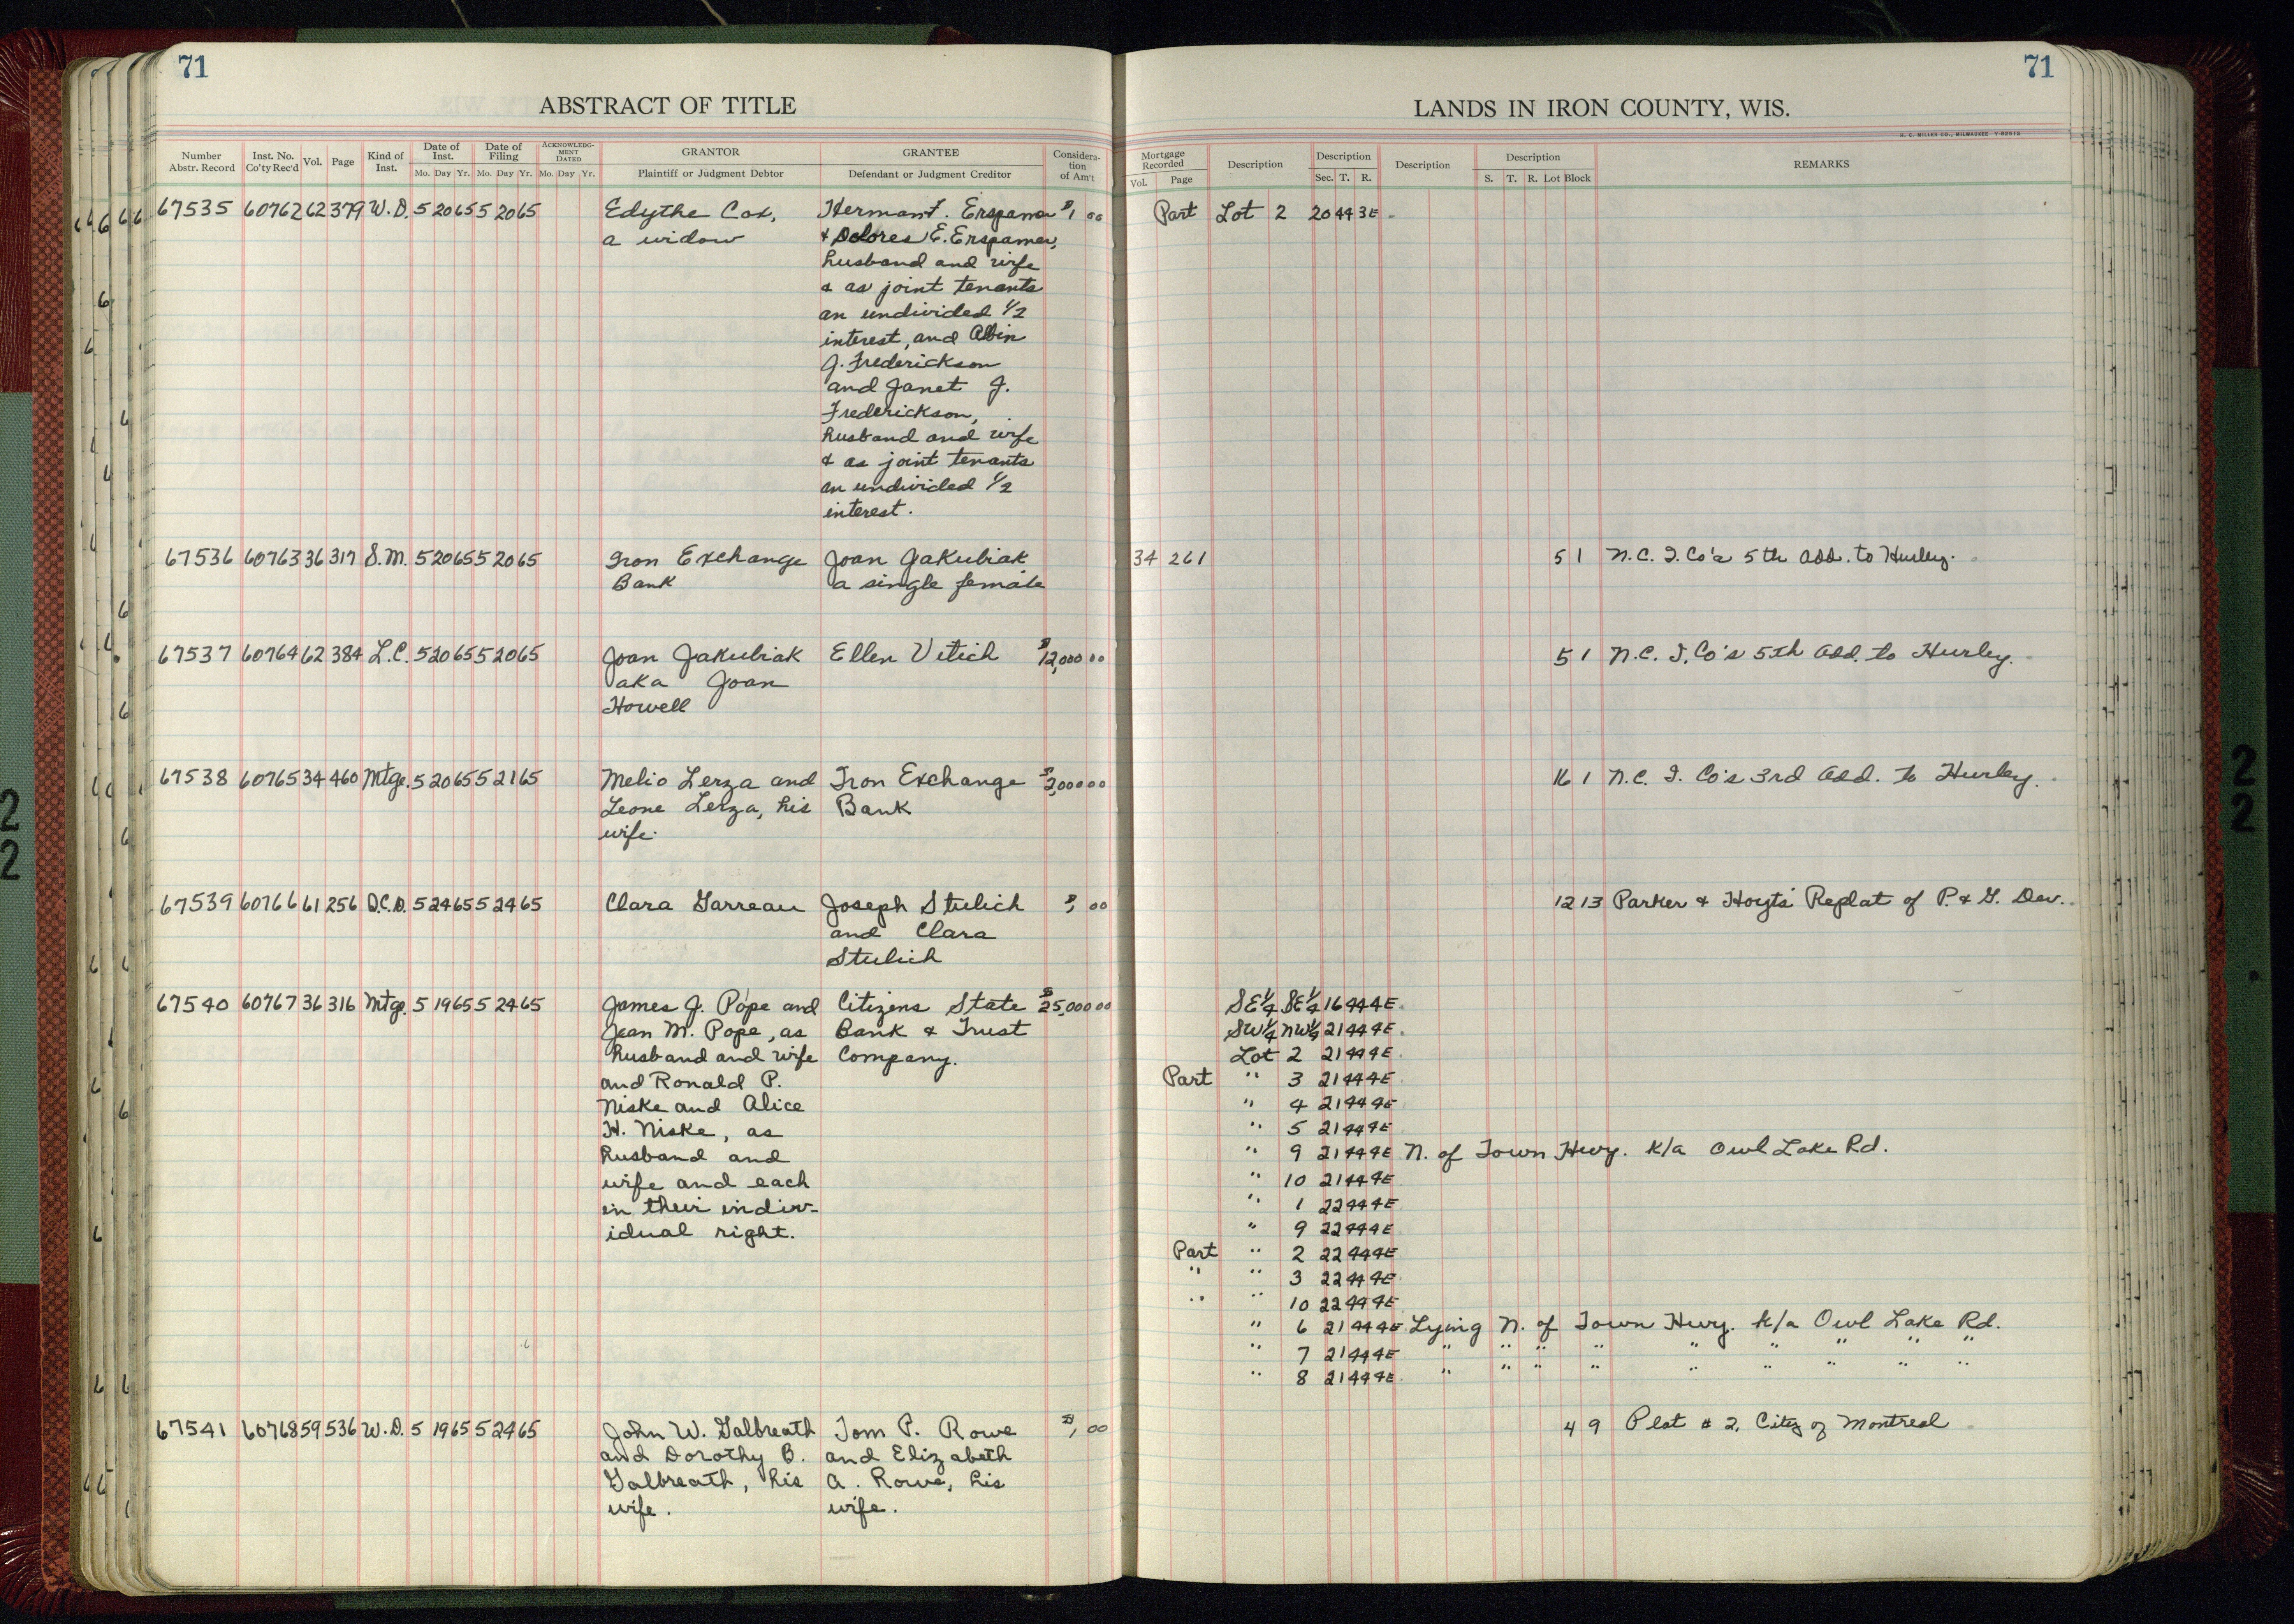 71
71
ABSTRACT OF TITLE
LANDS IN IRON COUNTY, WIS.
H. C. MILLER CO., MILWAUKEE
Number Abstr. Record
Inst. No. Co'ty Rec'd
Vol.
Page
Kind of Inst.
Date of Inst.
Mo. Day Yr.
Date of Filing
Mo. Day Yr.
ACKNOWLEDGMENT DATED
Mo. Day Yr.
GRANTOR
Plaintiff or Judgment Debtor
GRANTEE
Defendant or Judgment Creditor
Consideration of Am't
Mortgage Recorded
Vol. Page
Description
Description
Sec. T. R.
Description
Description
S. T. R. Lot Block
REMARKS
67535 60762 62 379 W.D. 5 20 65 5 20 65 Edythe Cox, Herman F. Erspamer $1 00 Part Lot 2 20 44 3E
a widow & Dolores E. Erspamer,
husband and wife
& as joint tenants
an undivided 1/2
interest, and Albin
J. Frederickson
and Janet J.
Frederickson,
husband and wife
& as joint tenants
an undivided 1/2
interest.
67536 60763 36 317 S.M. 5 20 65 5 20 65 Iron Exchange Joan Jakubiak 34 261 5 1 N.C.I. Co's 5th Add. to Hurley.
Bank a single female
67537 60764 62 384 L.C. 5 20 65 5 20 65 Joan Jakubiak Ellen Vitich $12,000 00 5 1 N.C. I. Co's 5th Add. to Hurley.
aka Joan
Howell
67538 60765 34 460 Mtge. 5 20 65 5 21 65 Melio Lerza and Iron Exchange $2,000 00 16 1 N.C. I. Co's 3rd Add. to Hurley.
Leone Lerza, his Bank
wife.
67539 60766 61 256 Q.C.D. 5 24 65 5 24 65 Clara Garreau Joseph Stulich $1 00 12 13 Parker & Hoyts' Replat of P. & G. Dev.
and Clara
Stulich
67540 60767 36 316 Mtge. 5 19 65 5 24 65 James J. Pope and Citizens State $25,000 00 SE 1/4 SE 1/4 16 44 4E
Jean M. Pope, as Bank & Trust SW 1/4 NW 1/4 21 44 4E
husband and wife Company. Lot 2 21 44 4E
and Ronald P. Part " 3 21 44 4E
Niske and Alice " 4 21 44 4E
H. Niske, as " 5 21 44 4E
husband and " 9 21 44 4E N. of Town Hwy. k/a Owl Lake Rd.
wife and each " 10 21 44 4E
in their indiv- " 1 22 44 4E
idual right. " 9 22 44 4E
Part " 2 22 44 4E
" " 3 22 44 4E
" " 10 22 44 4E
" 6 21 44 4E Lying N. of Town Hwy. k/a Owl Lake Rd.
" 7 21 44 4E " " " " " " " " "
" 8 21 44 4E " " " " " " " " "
67541 60768 59 536 W.D. 5 19 65 5 24 65 John W. Galbreath Tom P. Rowe $1 00 4 9 Plat # 2, City of Montreal
and Dorothy B. and Elizabeth
Galbreath, his A. Rowe, his
wife. wife.
2
2
2
2